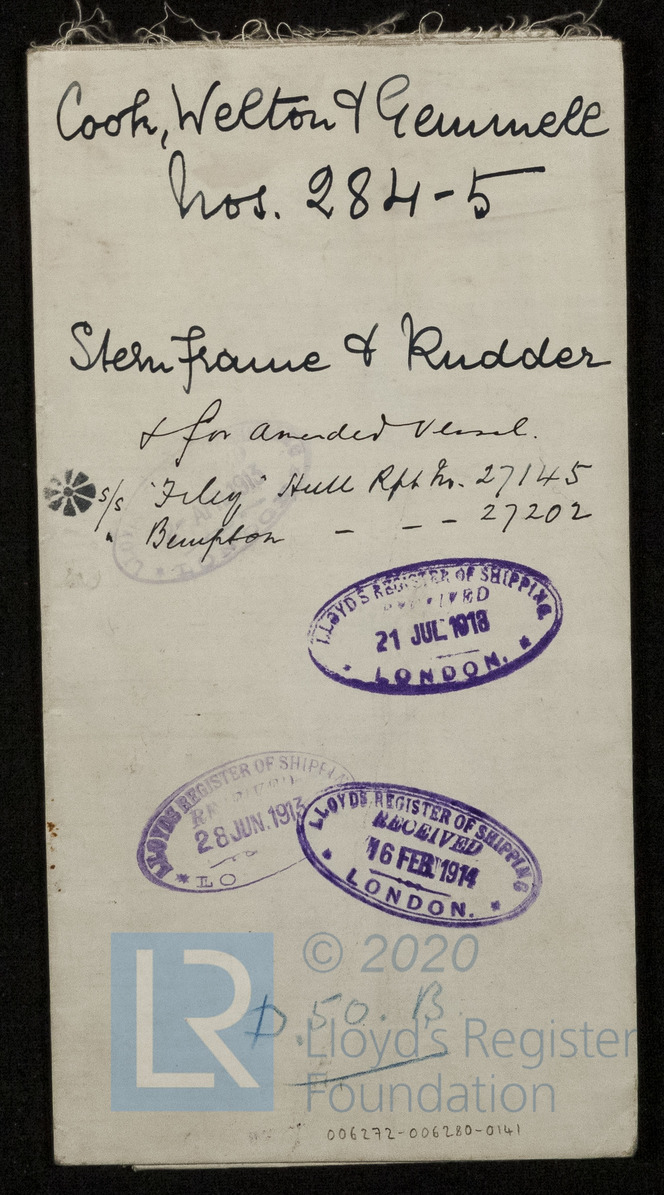 Cook, Welton & Gemmell
Nos. 284-5
Stern Frame & Rudder
& for amended Vessel.
s/s "Filey" Hull Rpt No. 27145
" Bempton - - - 27202
LLOYD'S REGISTER OF SHIPPING
RECEIVED
21 JUL 1913
LONDON.
LLOYDS REGISTER OF SHIPPIN
28 JUN. 1913
LO
LLOYDS REGISTER OF SHIPPING
RECEIVED
16 FEB. 1914
LONDON.
LR
© 2020
D.50.B
Lloyd's Register
Foundation
006272-006280-0141